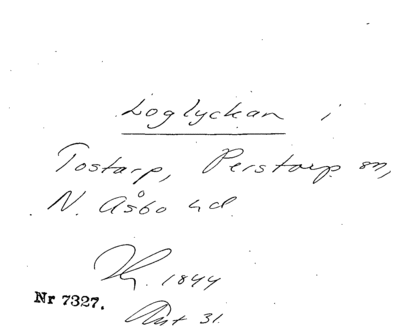 Loglyckan i
Tostarp, Perstorp sn,
N. Åsbo hd.
1844
Nr 7327.
31.